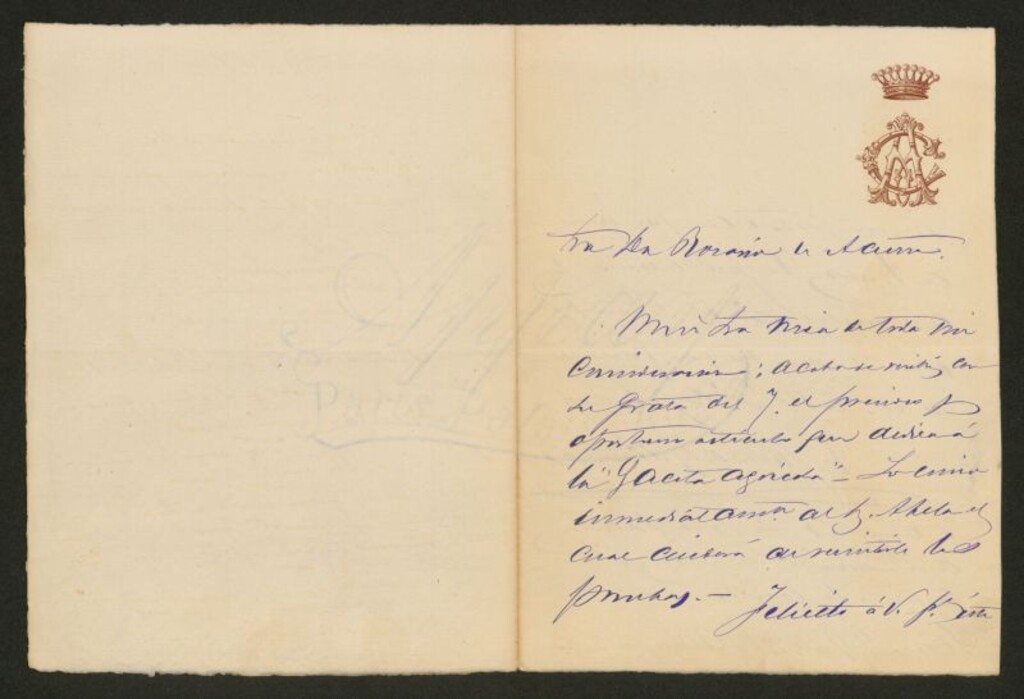 Sra Dña Rosario de Acuña.
Muy Sra mia de toda mi
consideracion; acabo de recibir con
su grata del 7, el precioso y
oportuno articulo que dedica á
la "Gaceta agrícola" – Lo envio
inmediatamte al Sr. Abela el
cual cuidará de remitirle las
pruebas. — Felicito á V. pr este